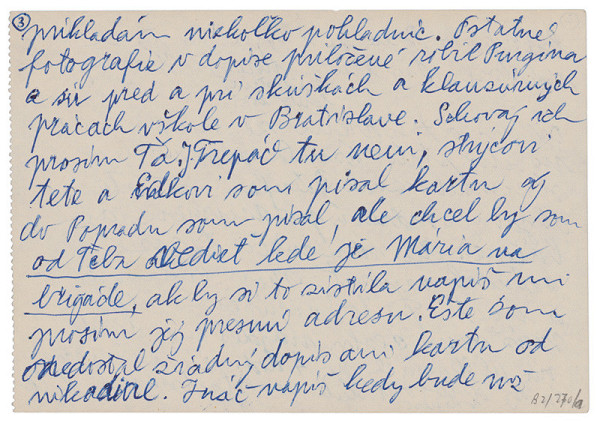 ③
prikladám niekoľko pohladnic. Ostatné
fotografie v dopise priložené robil Purgina
a sú pred a pri skúškách a klauzúrnych
prácach vškole v Bratislave. Schovaj ich
prosím Ťa. J. Trepáč tu neni, strýcovi
tete a Edkovi som písal kartu aj
do Popradu som písal, ale chcel by som
od Teba vediet kde je Mária na
brigáde, ak by si to zistila napíš mi
prosím jej presnú adresu. Ešte som
nedostal žiadny dopis ani kartu od
nikadial. Ináč napíš kedy bude
B2/270/a